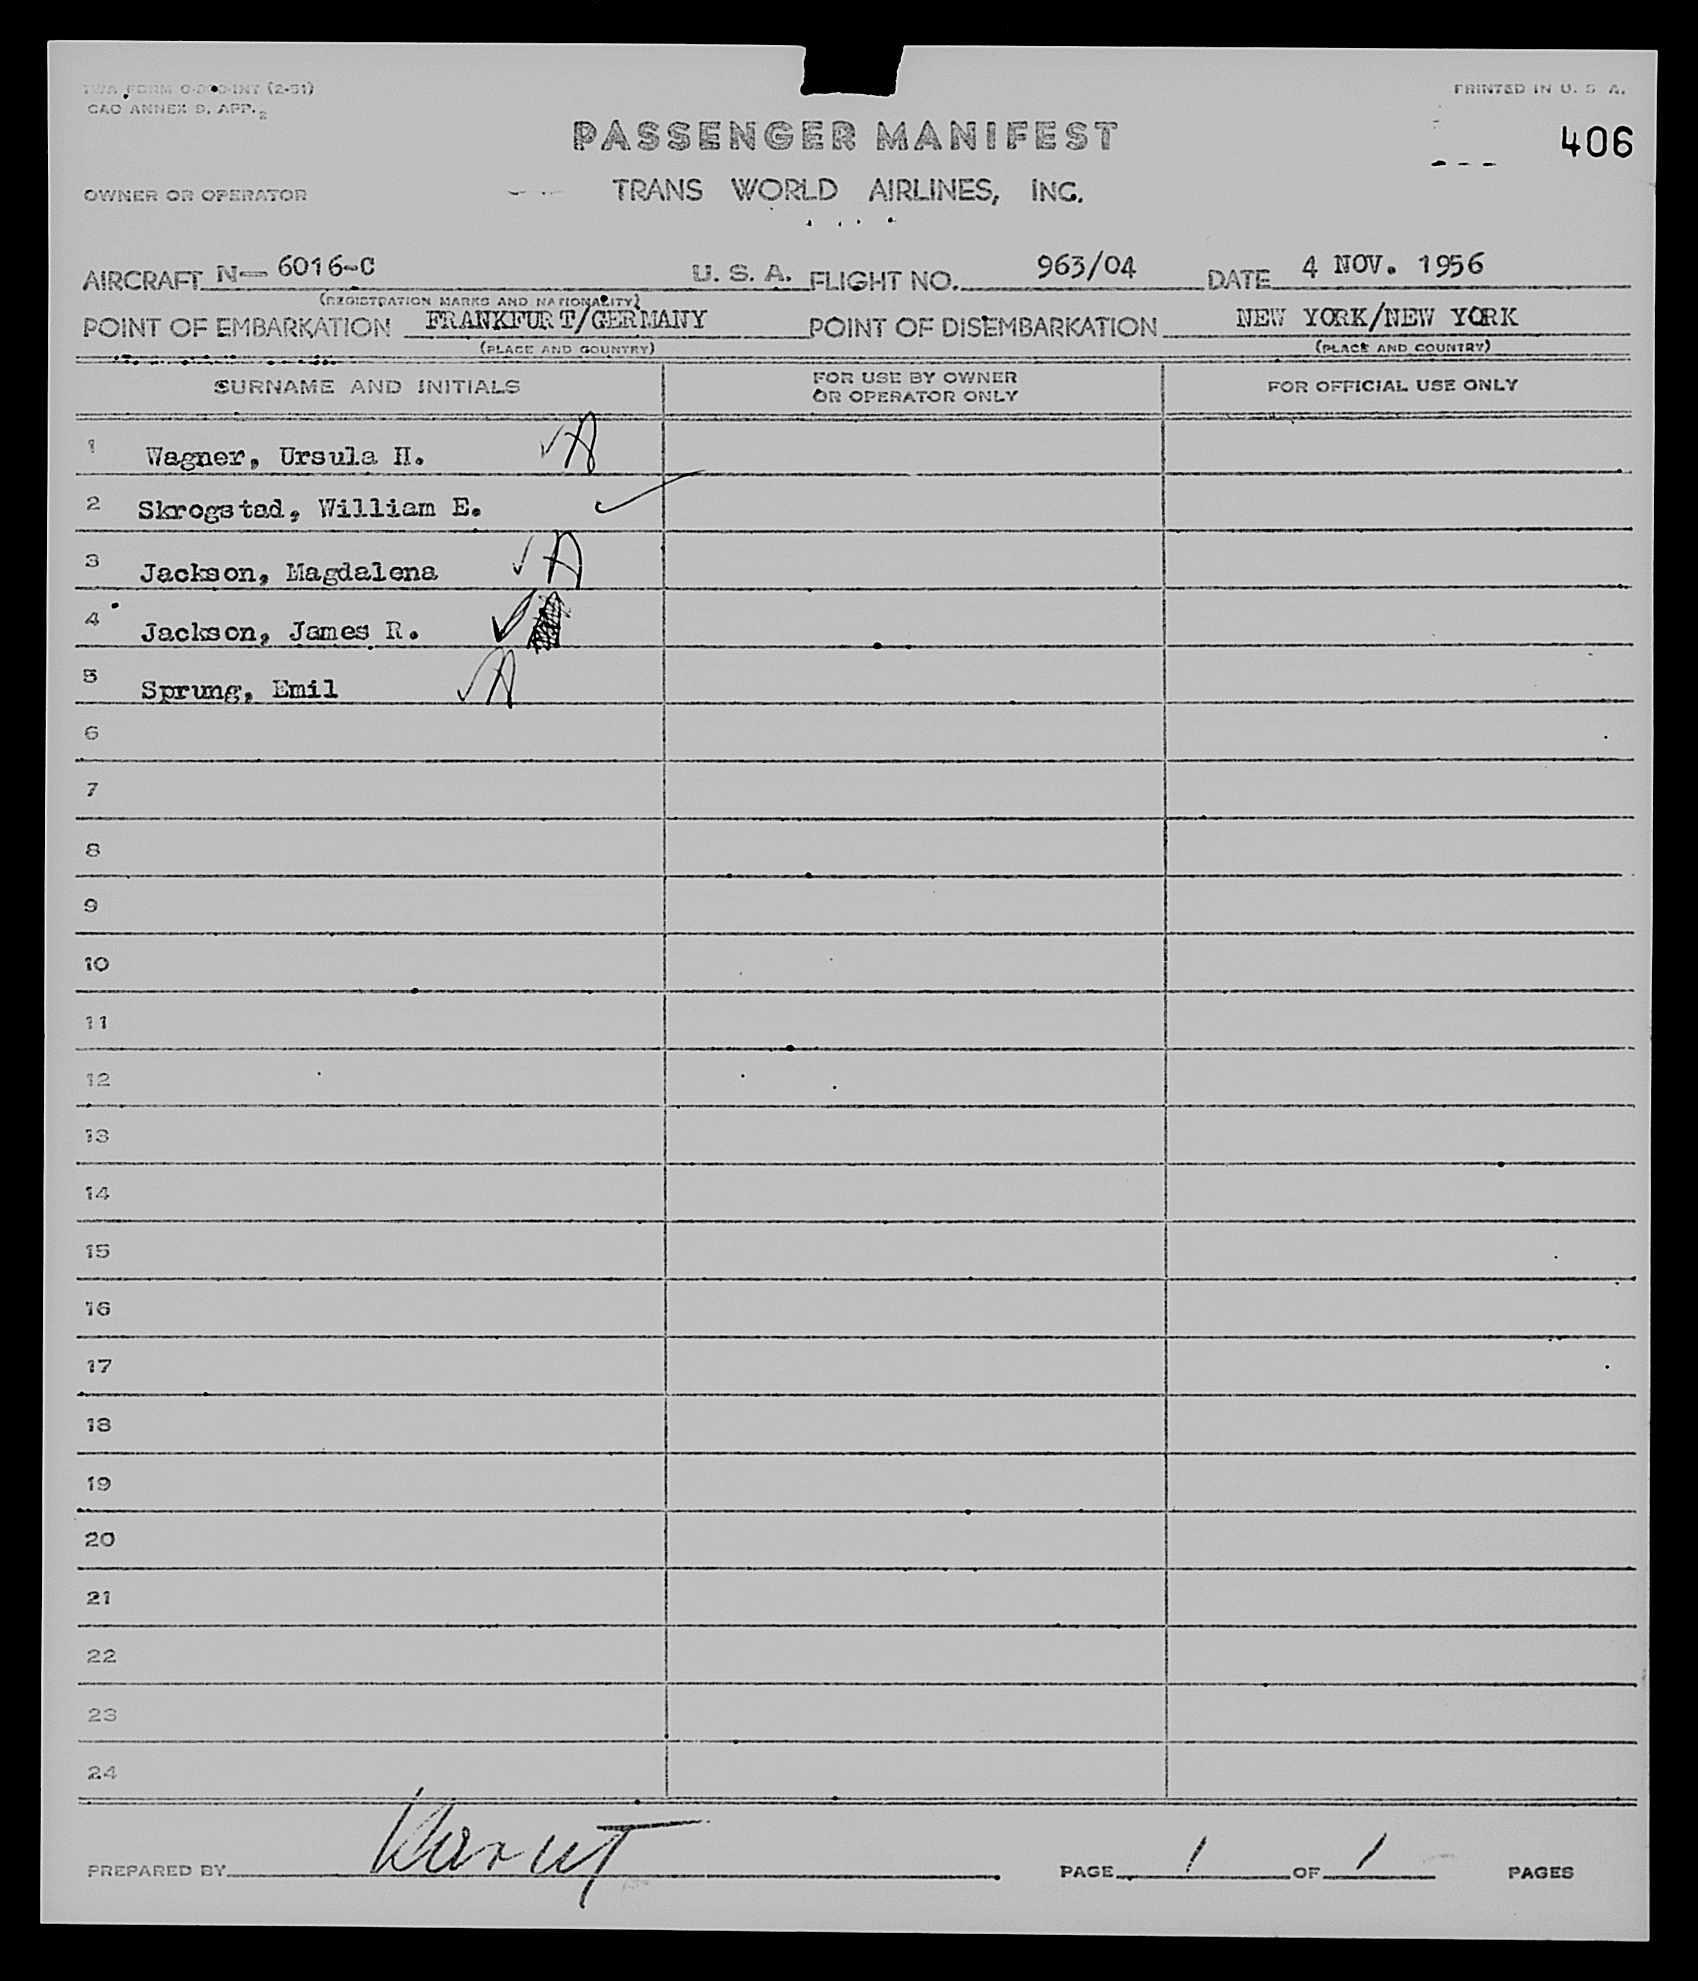 (2-51)
CAO ANNEX 9, APP. 2
PRINTED IN U. S. A.
PASSENGER MANIFEST
406
OWNER OR OPERATOR TRANS WORLD AIRLINES, INC.
AIRCRAFT N— 6016-C U. S. A. FLIGHT NO. 963/04 DATE 4 NOV. 1956
(REGISTRATION MARKS AND NATIONALITY)
POINT OF EMBARKATION FRANKFURT/GERMANY POINT OF DISEMBARKATION NEW YORK/NEW YORK
(PLACE AND COUNTRY) (PLACE AND COUNTRY)
SURNAME AND INITIALS FOR USE BY OWNER OR OPERATOR ONLY FOR OFFICIAL USE ONLY
1 Wagner, Ursula H. ✓ A
2 Skrogstad, William E. ✓
3 Jackson, Magdalena ✓ A
4 Jackson, James R. ✓
5 Sprung, Emil ✓ A
6
7
8
9
10
11
12
13
14
15
16
17
18
19
20
21
22
23
24
PREPARED BY PAGE 1 OF 1 PAGES